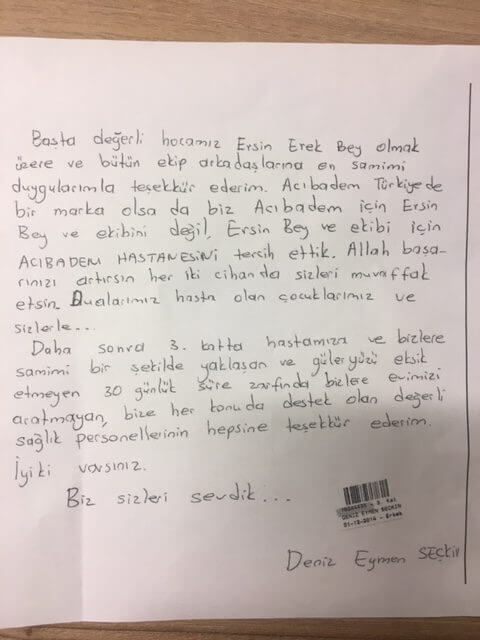 Başta değerli hocamız Ersin Erek Bey olmak
üzere ve bütün ekip arkadaşlarına en samimi
duygularımla teşekkür ederim. Acıbadem Türkiyede
bir marka olsa da biz Acıbadem için Ersin
Bey ve ekibini değil, Ersin Bey ve ekibi için
ACIBADEM HASTANESİNİ tercih ettik. Allah başa-
rınızı artırsın her iki cihanda sizleri muvaffak
etsin. Dualarımız hasta olan çocuklarımız ve
sizlerle...
Daha sonra 3. katta hastamıza ve bizlere
samimi bir şekilde yaklaşan ve güleryüzü eksik
etmeyen 30 günlük süre zarfında bizlere evimizi
aratmayan, bize her konuda destek olan değerli
sağlık personellerinin hepsine teşekkür ederim.
İyiki varsınız.
Biz sizleri sevdik...
- 3. Kat
DENIZ EYMEN SECKIN
01-12-2014 - Erkek
Deniz Eymen SEÇKİN